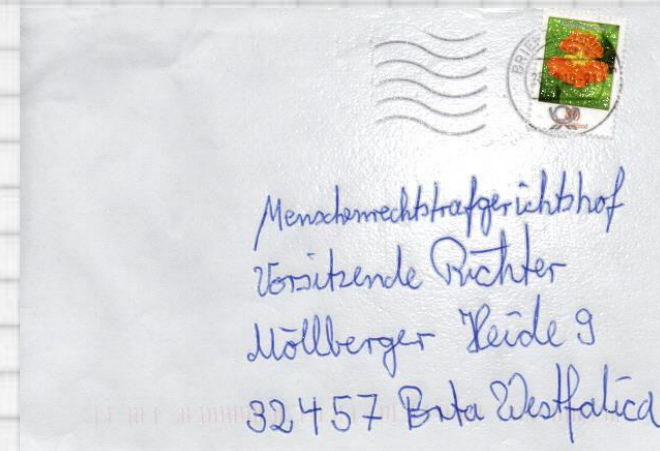 BRIEF
Menschenrechtstrafgerichtshof
Vorsitzende Richter
Möllberger Heide 9
32457 Porta Westfalica